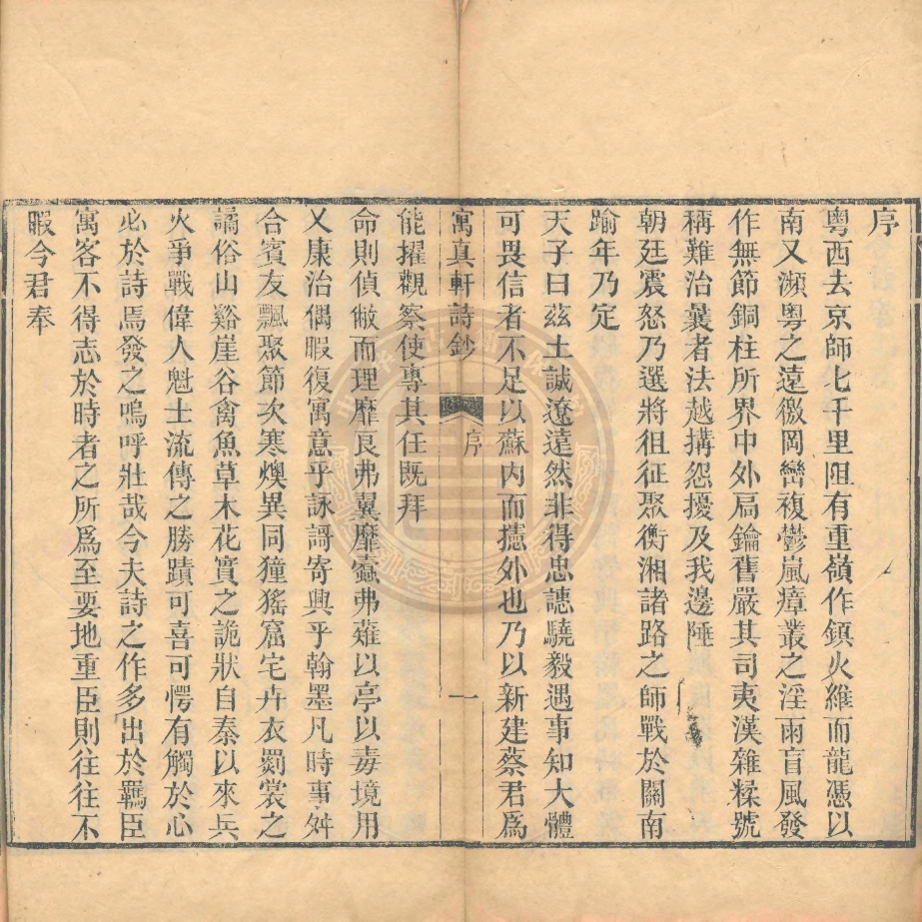 序
粵西去京師七千里阻有重嶺作鎮火維而龍憑以
南又瀕粵之遠徼岡巒複鬱嵐瘴叢之淫雨盲風發
作無節銅柱所界中外扃鑰舊嚴其司夷漢雜糅號
稱難治曩者法越搆怨擾及我邊陲
朝廷震怒乃選將徂征聚衡湘諸路之師戰於關南
踰年乃定
天子曰茲土誠遼遠然非得忠讜驍毅遇事知大體
可畏信者不足以蘇內而攇外也乃以新建蔡君爲
寓真軒詩鈔 序 一
能擢觀察使專其任既拜
命則偵敝而理靡良弗翼靡蠹弗薙以亭以毒境用
乂康治偶暇復寓意乎詠謌寄興乎翰墨凡時事舛
合賓友飄聚節次寒燠異同獞猺窟宅卉衣罽裳之
譎俗山谿崖谷禽魚草木花實之詭狀自秦以來兵
火爭戰偉人魁士流傳之勝蹟可喜可愕有觸於心
必於詩焉發之嗚呼壯哉今夫詩之作多出於羈臣
寓客不得志於時者之所爲至要地重臣則往往不
暇今君奉